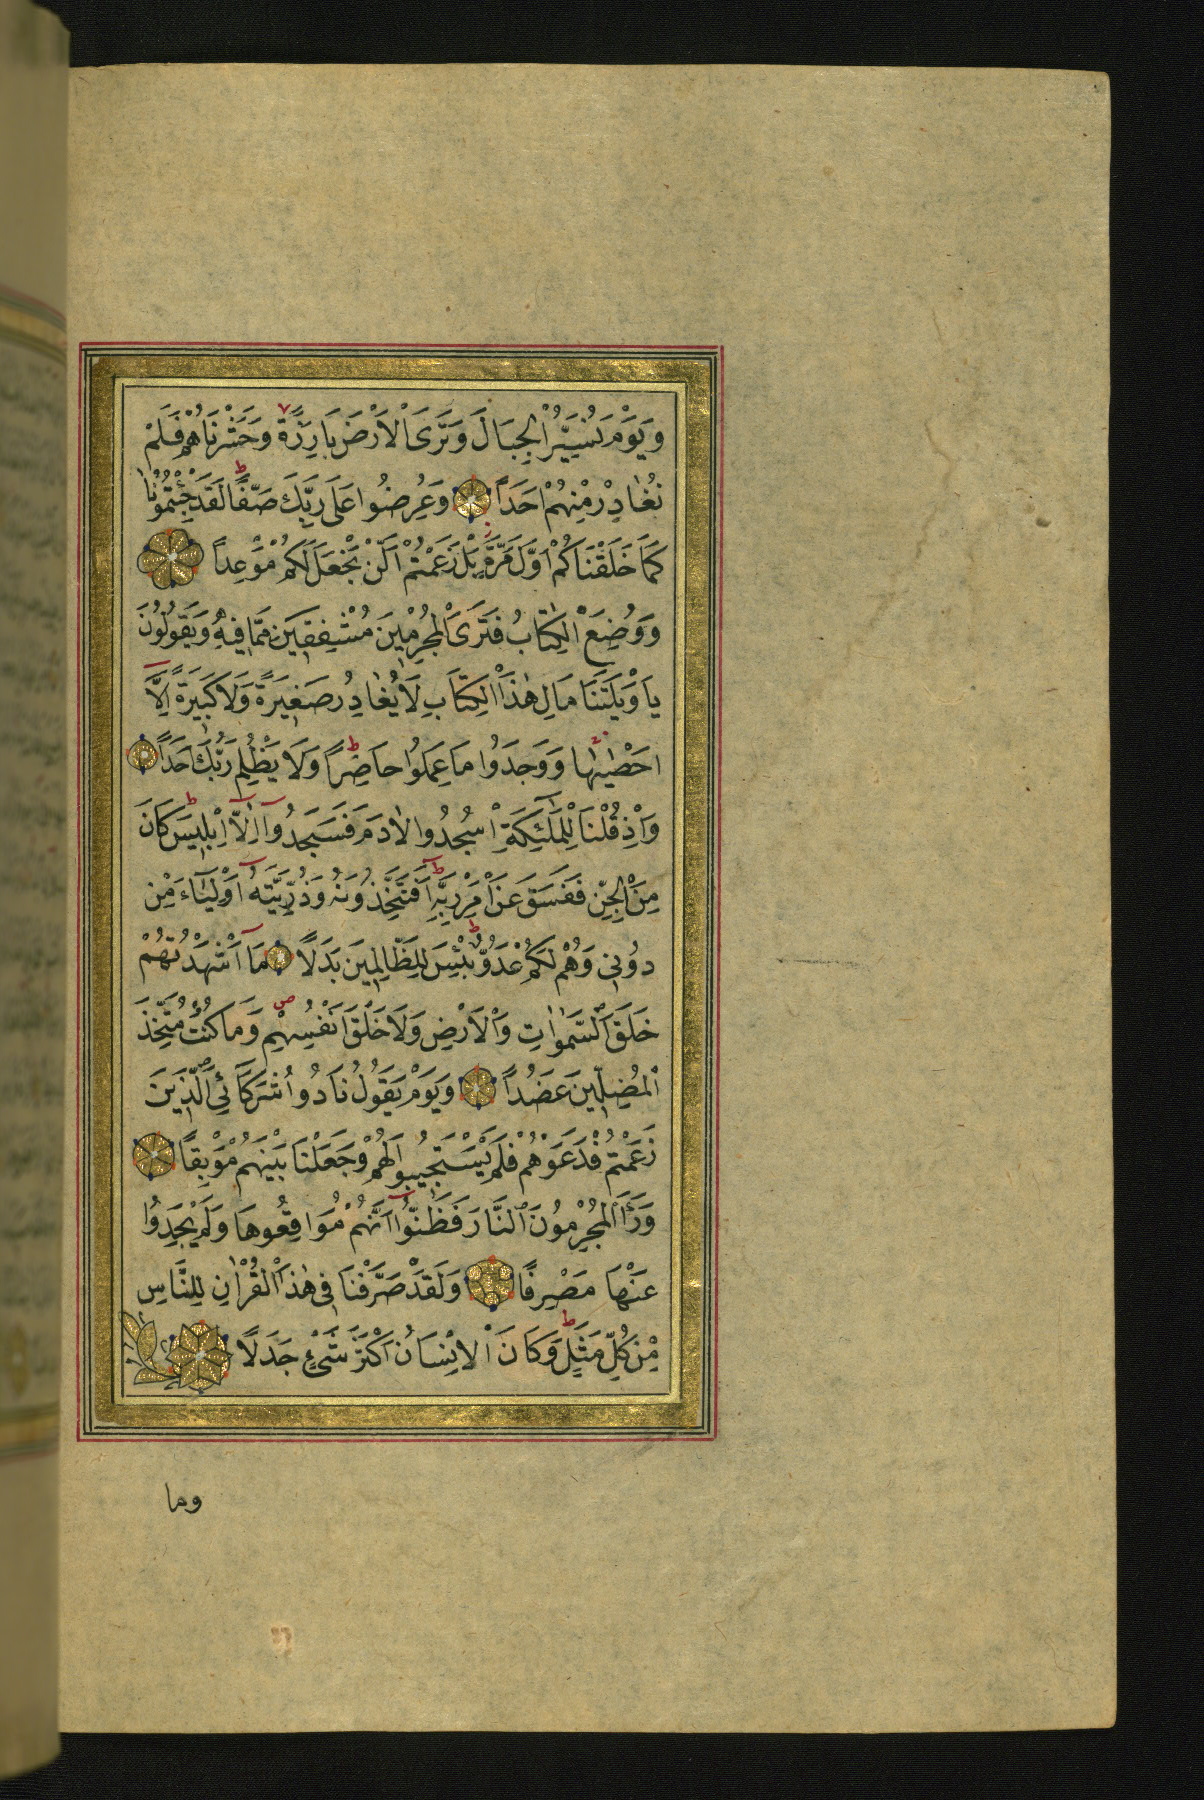 وَيَوْمَ نُسَيِّرُ الْجِبَالَ وَتَرَى الْاَرْضَ بَارِزَةً وَحَشَرْنَاهُمْ فَلَمْ
نُغَادِرْ مِنْهُمْ اَحَدًا وَعُرِضُوا عَلَى رَبِّكَ صَفًّا لَقَدْ جِئْتُمُونَا
كَمَا خَلَقْنَاكُمْ اَوَّلَ مَرَّةٍ بَلْ زَعَمْتُمْ اَلَّنْ نَجْعَلَ لَكُمْ مَوْعِدًا
وَوُضِعَ الْكِتَابُ فَتَرَى الْمُجْرِمِينَ مُشْفِقِينَ مِمَّا فِيهِ وَيَقُولُونَ
يَا وَيْلَتَنَا مَالِ هٰذَا الْكِتَابِ لَا يُغَادِرُ صَغِيرَةً وَلَا كَبِيرَةً اِلَّا
اَحْصٰيهَا وَوَجَدُوا مَا عَمِلُوا حَاضِرًا وَلَا يَظْلِمُ رَبُّكَ اَحَدًا
وَاِذْ قُلْنَا لِلْمَلٰئِكَةِ اسْجُدُوا لِاٰدَمَ فَسَجَدُوا اِلَّا اِبْلِيسَ كَانَ
مِنَ الْجِنِّ فَفَسَقَ عَنْ اَمْرِ رَبِّهِ اَفَتَتَّخِذُونَهُ وَذُرِّيَّتَهُ اَوْلِيَاءَ مِنْ
دُونِي وَهُمْ لَكُمْ عَدُوٌّ بِئْسَ لِلظَّالِمِينَ بَدَلًا مَا اَشْهَدْتُهُمْ
خَلْقَ السَّمٰوَاتِ وَالْاَرْضِ وَلَا خَلْقَ اَنْفُسِهِمْ وَمَا كُنْتُ مُتَّخِذَ
الْمُضِلِّينَ عَضُدًا وَيَوْمَ يَقُولُ نَادُوا شُرَكَائِيَ الَّذِينَ
زَعَمْتُمْ فَدَعَوْهُمْ فَلَمْ يَسْتَجِيبُوا لَهُمْ وَجَعَلْنَا بَيْنَهُمْ مَوْبِقًا
وَرَاَ الْمُجْرِمُونَ النَّارَ فَظَنُّوا اَنَّهُمْ مُوَاقِعُوهَا وَلَمْ يَجِدُوا
عَنْهَا مَصْرِفًا وَلَقَدْ صَرَّفْنَا فِي هٰذَا الْقُرْاٰنِ لِلنَّاسِ
مِنْ كُلِّ مَثَلٍ وَكَانَ الْاِنْسَانُ اَكْثَرَ شَيْءٍ جَدَلًا
وما